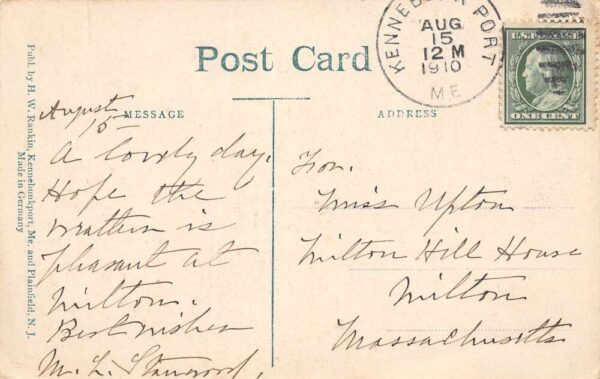 KENNEBUNK PORT
AUG
15
12 M
1910
ME
U.S. POSTAGE
ONE CENT
Post Card
MESSAGE
ADDRESS
August
15
A lovely day.
Hope the
weather is
pleasant at
Milton.
Best wishes
M. L. Stanwood,
For.
Miss Upton
Milton Hill House
Milton
Massachusetts
Publ. by H. W. Rankin, Kennebunkport, Me. and Plainfield, N. J.
Made in Germany